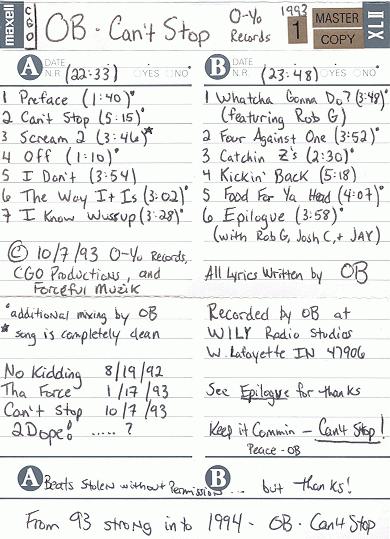 maxell C90 OB · Can't Stop O-Yo Records 1993 1 MASTER COPY XL II
A DATE N.R. (22:33) YES NO
1 Preface (1:40)*
2 Can't Stop (5:15)*
3 Scream 2 (3:46)★
4 Off (1:10)*
5 I Don't (3:54)
6 The Way It Is (3:02)*
7 I Know Wussup (3:28)*
© 10/7/93 O-Yo Records,
CGO Productions, and
Forceful Muzik
B DATE N.R. (23:48) YES NO
1 Whatcha Gonna Do? (3:48)*
(featuring Rob G)
2 Four Against One (3:52)*
3 Catchin Z's (2:30)*
4 Kickin' Back (5:18)
5 Food For Ya Head (4:07)*
6 Epilogue (3:58)*
(with Rob G, Josh C, + JAY)
All Lyrics Written by OB
*additional mixing by OB
★ song is completely clean
No Kidding 8/19/92
Tha Force 1/17/93
Can't Stop 10/7/93
2Dope! ..... ?
Recorded by OB at
WILY Radio Studios
W. Lafayette IN 47906
See Epilogue for thanks
Keep it Commin - Can't Stop!
Peace - OB
A B
Beats Stolen without Permission... but thanks!
From 93 strong in to 1994 - OB - Can't Stop